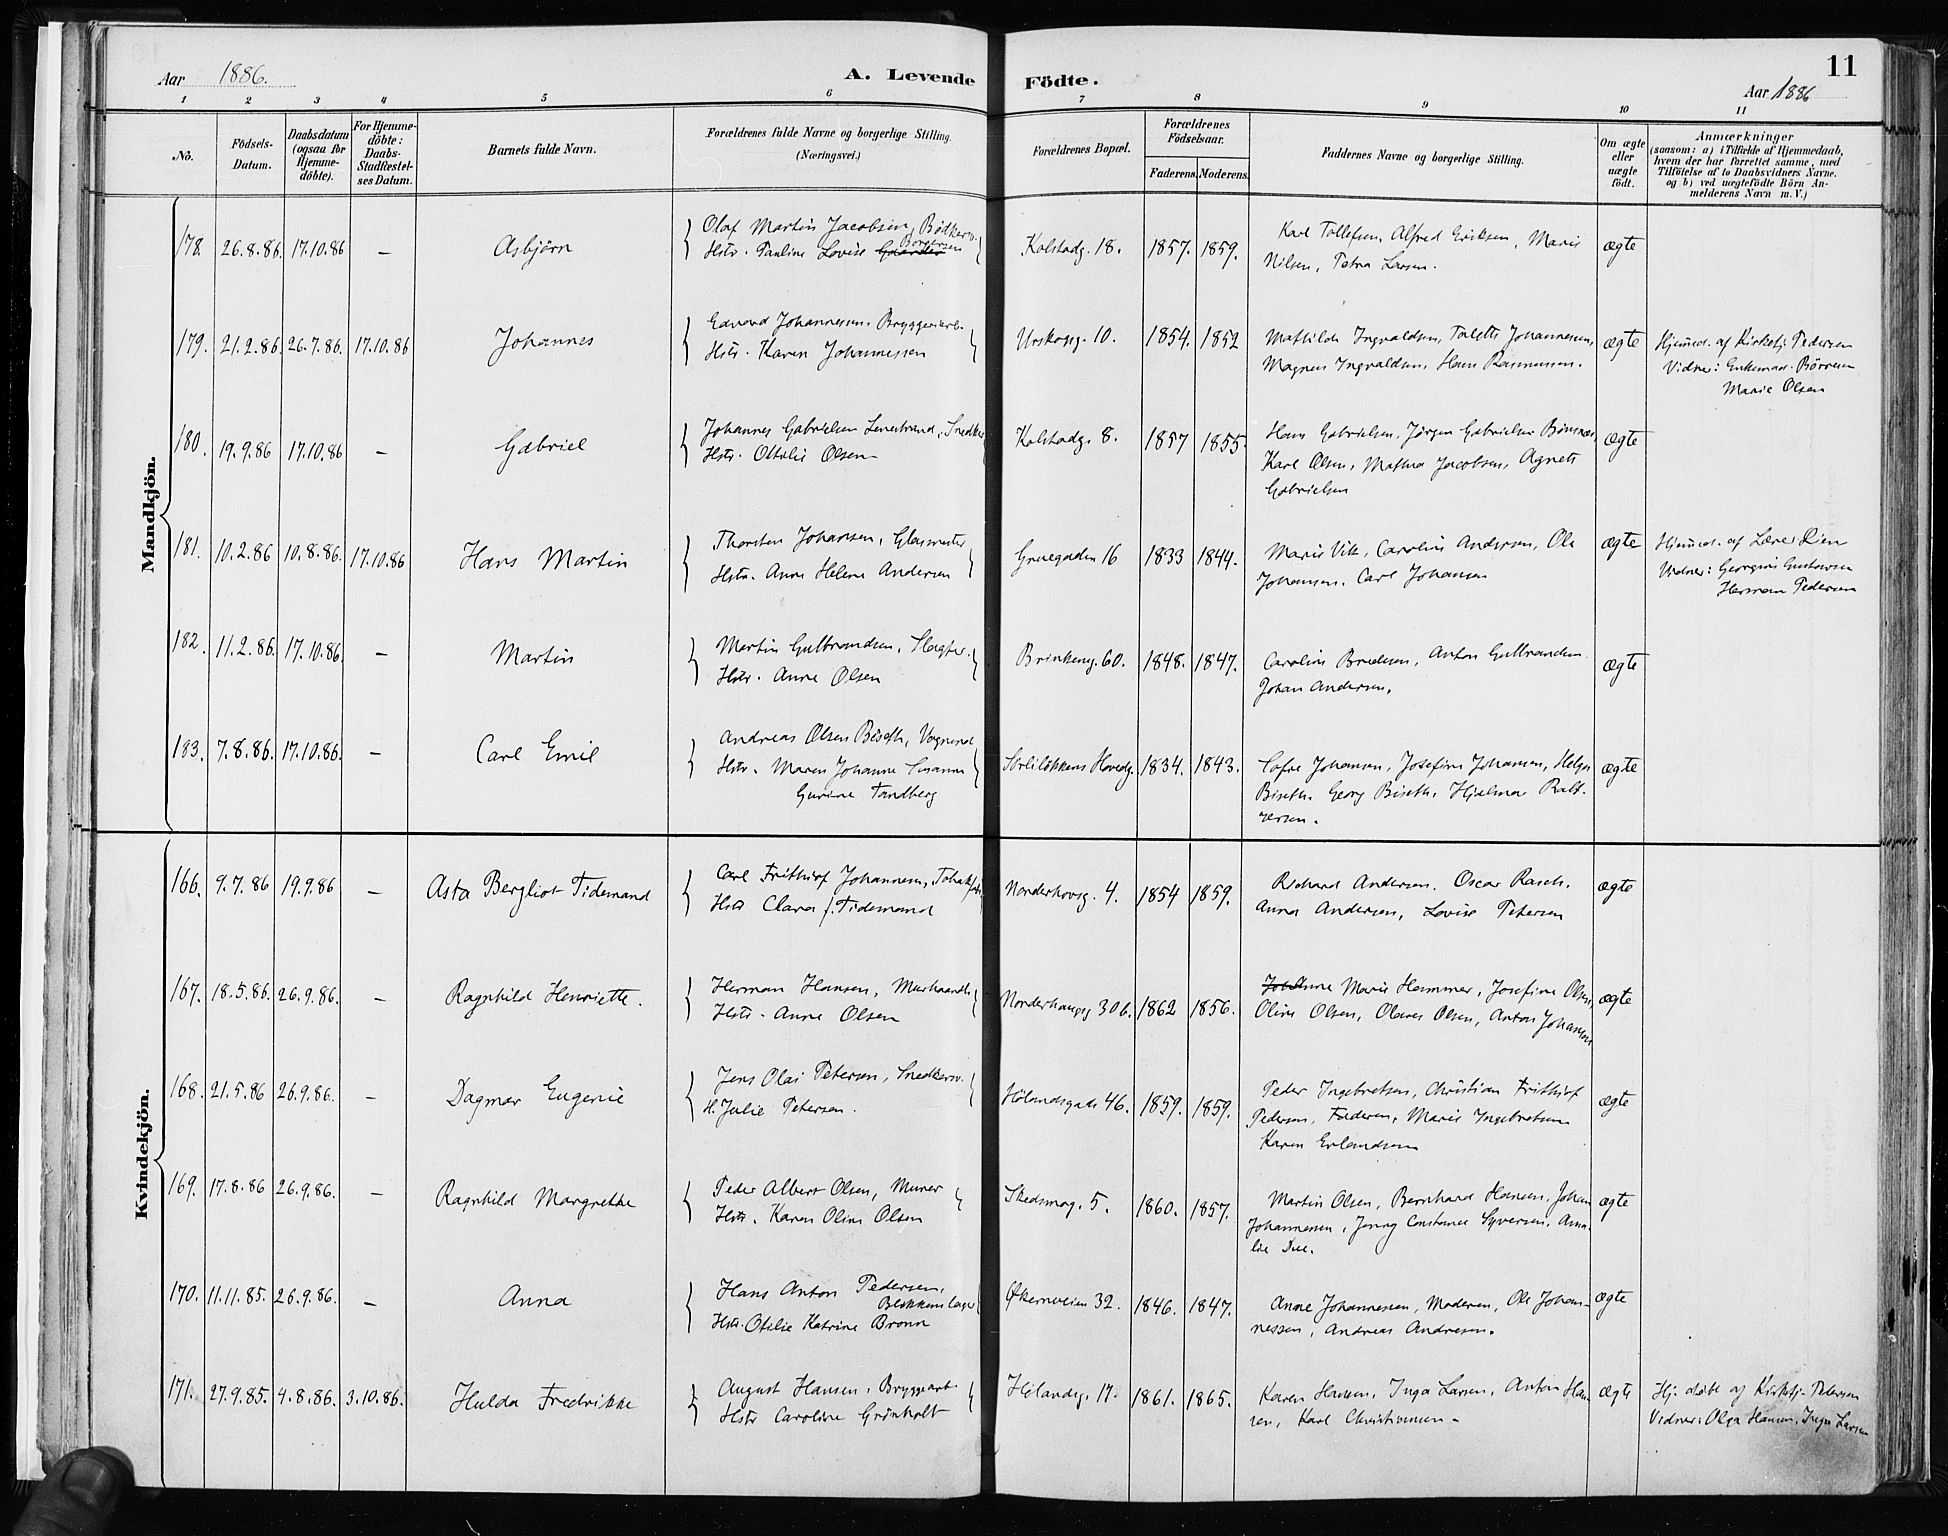 Aar 1886.
A. Levende Födte.
Aar 1886
11
1 2 3 4 5 6 7 8 9 10 11
No.
Födsels-Datum.
Daabsdatum (ogsaa for Hjemme-döbte).
For Hjemme-döbte: Daabs-Stadfæstel-ses Datum.
Barnets fulde Navn.
Forældrenes fulde Navne og borgerlige Stilling.
(Næringsvei.)
Forældrenes Bopæl.
Forældrenes Födselsaar.
Faderens. Moderens.
Faddernes Navne og borgerlige Stilling.
Om ægte eller uægte födt.
Anmærkninger
(saasom: a) i Tilfælde af Hjemmedaab,
hvem der har forrettet samme, med
Tilföielse af to Daabsvidners Navne,
og b) ved uægtefödte Börn An-
melderens Navn m. V.)
Mandkjön.
178. 26.8.86. 17.10.86 — Asbjörn
Olaf Martin Jacobsen, Bödkersv.
Hstr. Pauline Lovise Borgersen
Kalstadg. 18. 1857. 1859.
Karl Tollefsen, Alfred Eriksen, Marie
Nilsen, Petra Larsen.
ægte
179. 21.2.86. 26.7.86. 17.10.86 Johannes
Edvard Johannessen, Bryggeriarb.
Hstr. Karen Johannessen
Urskogg. 10. 1854. 1852
Mathilde Ingvaldsen, Johannessen,
Magnus Ingvaldsen, Hans Rasmussen.
ægte
Hjemmed. af Kirketj. Pedersen
Vidner: Enkemad. Börresen
Marie Olsen
180. 19.9.86 17.10.86 — Gabriel
Johannes Gabrielsen Snedker
Hstr. Ottilie Olsen
Kalstadg. 8. 1857 1855
Hans Gabrielsen, Jörgen Gabrielsen Bönsnæs,
Karl Olsen, Mathea Jacobsen, Agnete
Gabrielsen
ægte
181. 10.2.86 10.8.86. 17.10.86 Hans Martin
Thorsten Johansen, Glasmester
Hstr. Anne Helene Andersen
Gruegaden 16 1833 1844.
Marie Vik, Caroline Andersen, Ole
Johansen, Carl Johansen
ægte
Hjemmed. af Lærer Lien
Vidner: Georgine Gustavsen
Herman Pedersen
182. 11.2.86. 17.10.86. — Martin
Martin Gulbrandsen, Slagter.
Hstr. Anne Olsen
Brinkeng. 60. 1848. 1847.
Caroline Bredesen, Anton Gulbrandsen
Johan Andersen.
ægte
183. 7.8.86. 17.10.86. — Carl Emil
Andreas Olsen Biseth, Vognmd
Hstr. Maren Johanne Susanne
Gurine Tandberg
Sorliløkkens Hovedg. 1834. 1843.
Johansen, Josefine Johansen, Helga
Biseth, Georg Biseth, Hjalmar
ægte
Kvindekjön.
166. 9.7.86 19.9.86 — Asta Bergliot Tidemand
Carl Frithiof Johannesen,
Hstr Clara f. Tidemand
Nonderhovsg. 4. 1854 1859.
Richard Andersen. Oscar Rasch.
Anna Andersen, Lovise Petersen
ægte
167. 18.5.86. 26.9.86. — Ragnhild Henriette.
Herman Hansen, Murhaandl.
Hstr. Anne Olsen
Nonderhougsg 30 b. 1862 1856.
Anne Marie Hammer, Josefine Olsen,
Oline Olsen, Olaves Olsen, Anton Johansen
ægte
168. 21.5.86 26.9.86. — Dagmar Eugenie
Jens Olai Petersen, Snedkersv.
H. Julie Petersen.
Hölandsgade 46. 1859. 1859.
Peder Ingebretsen, Christian Frithiof
Pedersen, Faderen, Marie Ingebretsen
Karen Erlandsen
ægte
169. 17.8.86 26.9.86. — Ragnhild Margrethe
Peder Albert Olsen, Murer
Hstr. Karen Oline Olsen
Skedsmog. 5. 1860. 1857.
Martin Olsen, Bernhard Hansen, Johan
Johannessen, Jenny Constance Syversen, Ama-
lie Due.
ægte
170. 11.11.85. 26.9.86. — Anna
Hans Anton Pedersen,
Blokkemager
Hstr. Otilie Katrine Bronn
Økernveien 32. 1846. 1847.
Anne Johannessen, Moderen, Ole Johan-
nessen, Andreas Andresen.
ægte
171. 27.9.85. 4.8.86. 3.10.86. Hulda Fredrikke
August Hansen, Bryggearb.
Hstr Caroline Grönholt
Hölandsg. 17. 1861. 1865.
Karen Hansen, Inga Larsen, Anton Han-
sen, Karl Christiansen -
ægte
Hj. döbt af Kirketj. Petersen
Vidner: Olga Hansen, Inga Larsen